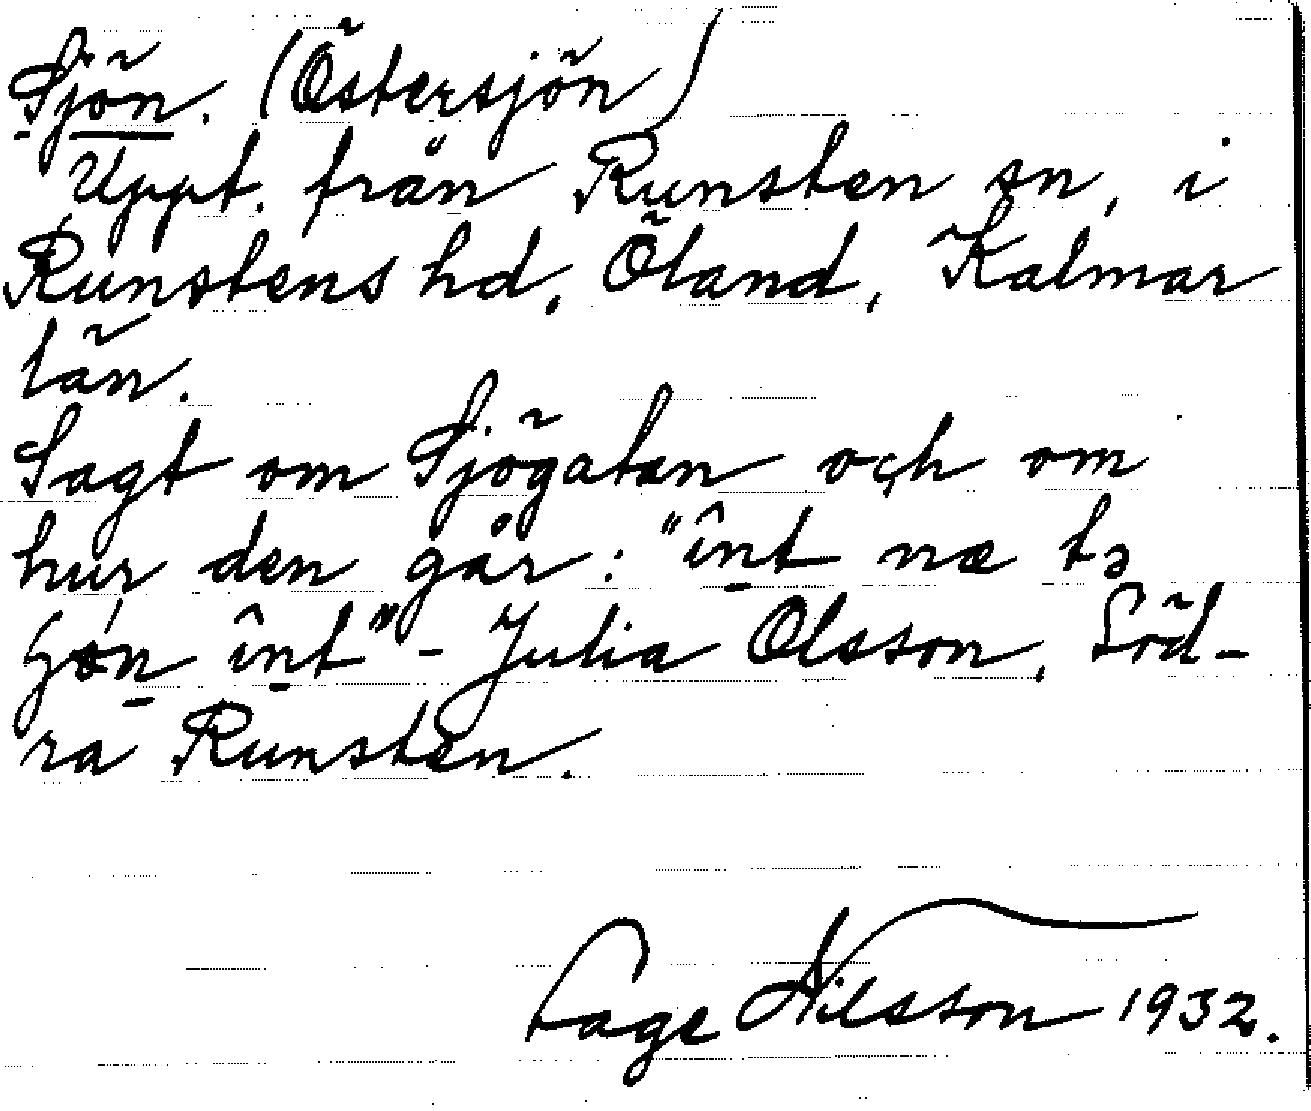 Sjön. (Östersjön)
Uppt. från Runsten sn, i
Runstens hd, Öland, Kalmar
län.
Sagt om Sjögatan och om
hur den går: "înt næ tə
înt" - Julia Olsson, Söd-
ra Runsten.
Lage Nilsson 1932.